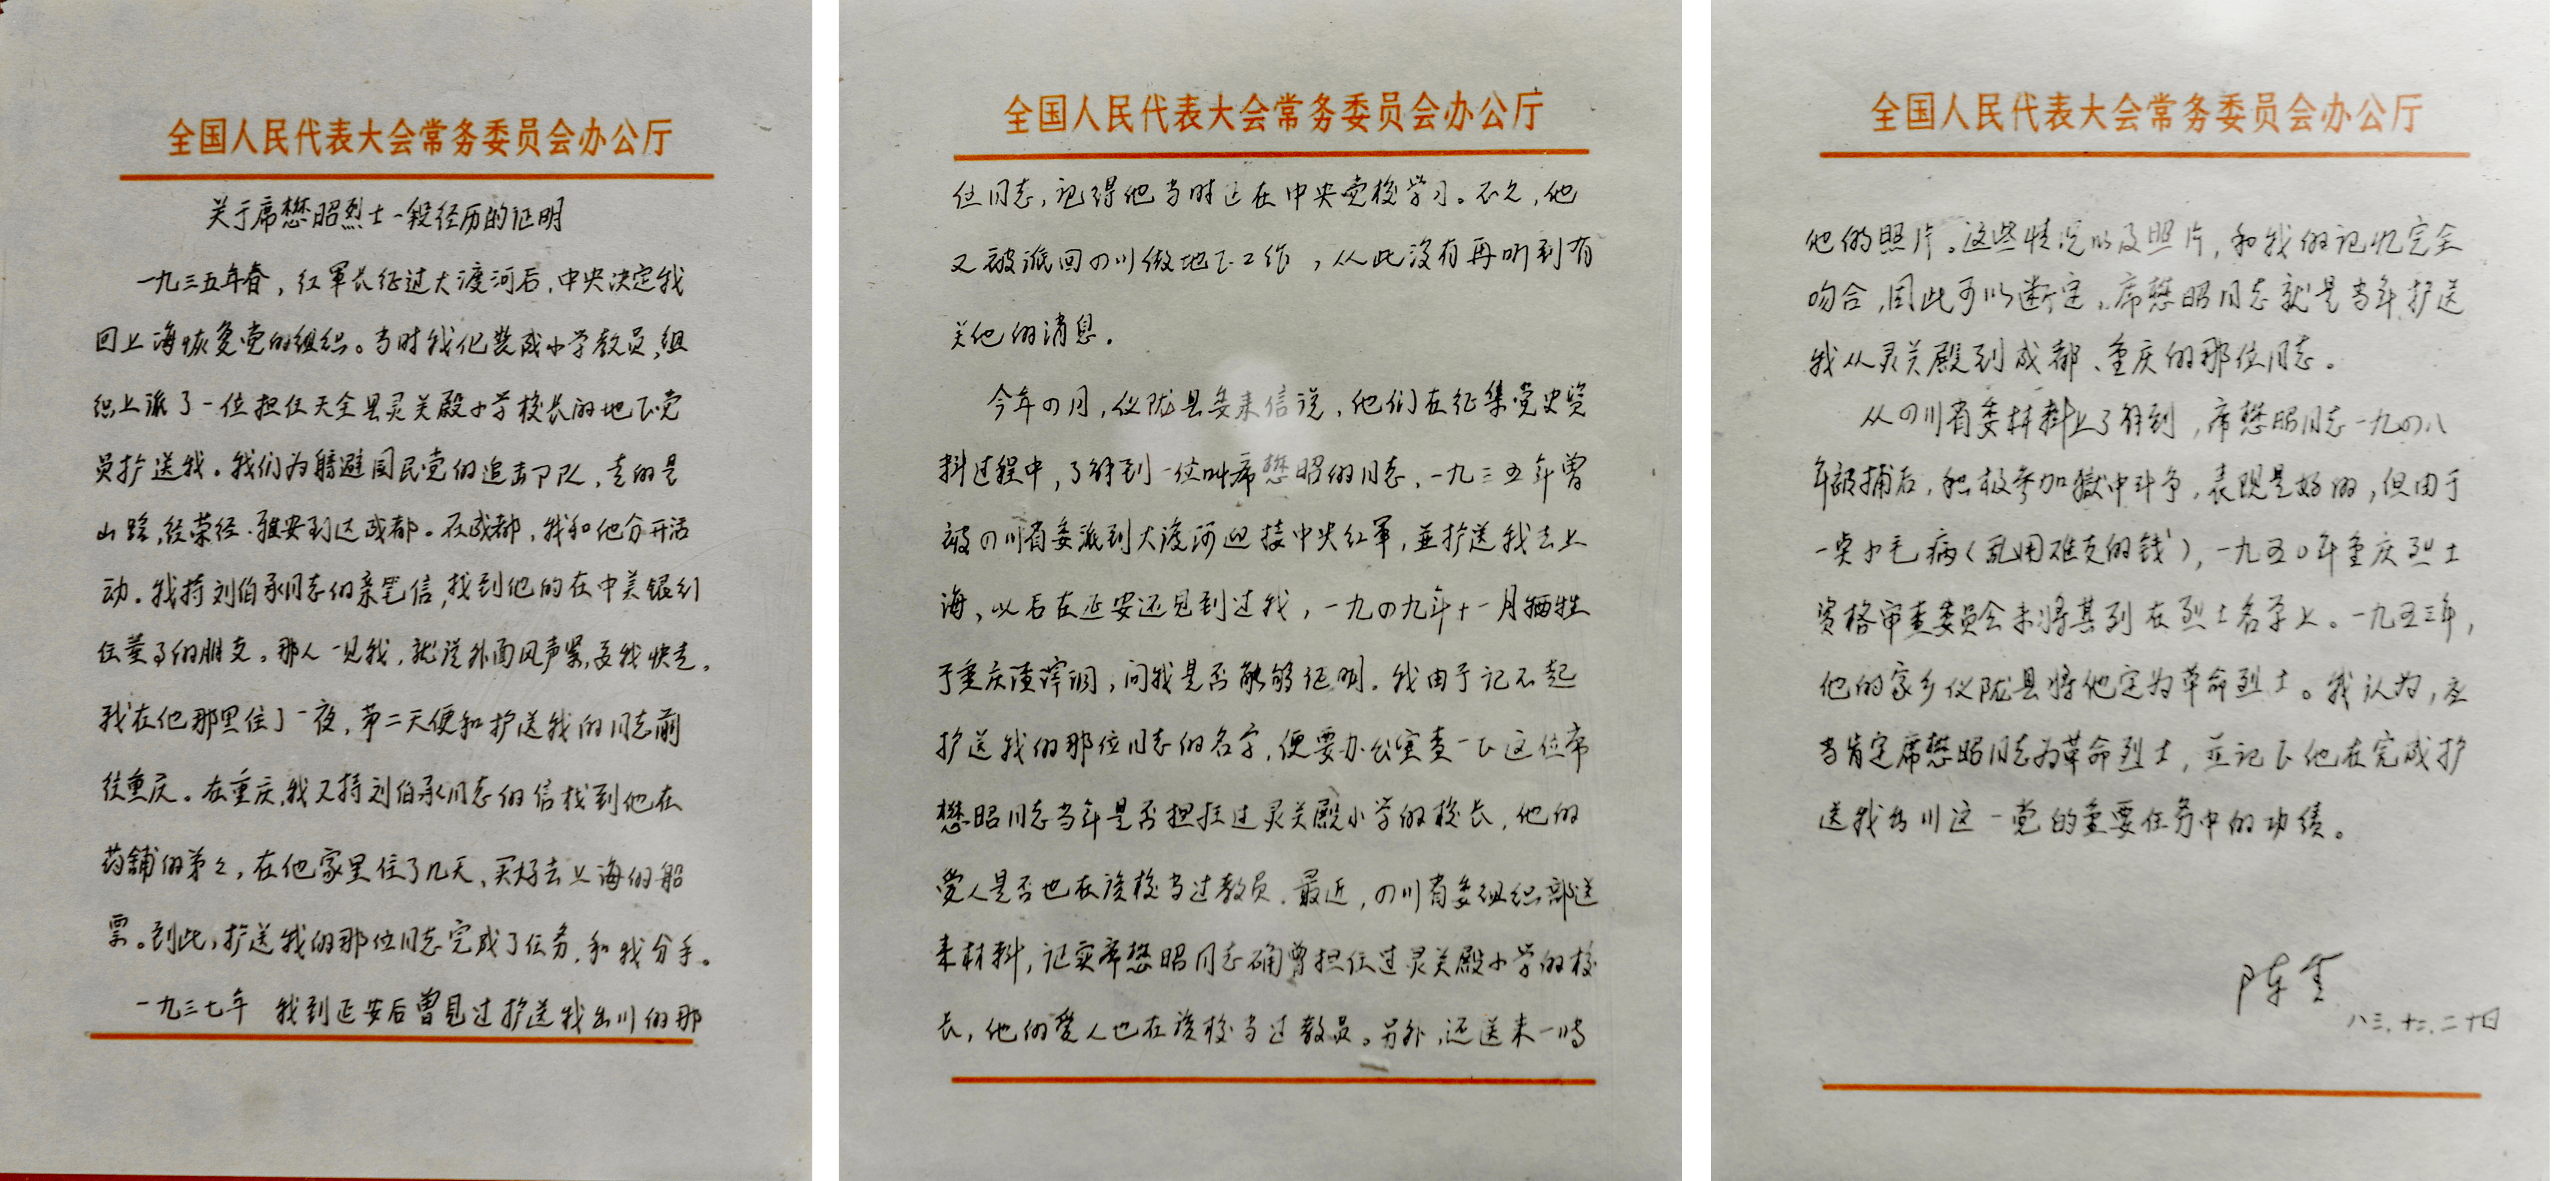 全国人民代表大会常务委员会办公厅
关于席懋昭烈士一段经历的证明
一九三五年春，红军长征过大渡河后，中央决定我
回上海恢复党的组织。当时我化装成小学教员，组
织上派了一位担任天全县灵关殿小学校长的地下党
员护送我。我们为避国民党的追击部队，走的是
山路，经荣经、雅安到达成都。在成都，我和他分开活
动。我持刘伯承同志的亲笔信，找到他的在中美银行
任董事的朋友。那人一见我，就说外面风声紧，要我快走。
我在他那里住了一夜，第二天便和护送我的同志前
往重庆。在重庆，我又持刘伯承同志的信找到他在
药铺的弟弟，在他家里住了几天、买好去上海的船
票。到此，护送我的那位同志完成了任务，和我分手。
一九三七年 我到延安后曾见过护送我出川的那
全国人民代表大会常务委员会办公厅
位同志，记得他当时正在中央党校学习。不久，他
又被派回四川做地下工作，从此没有再听到有
关他的消息。
今年四月，仪陇县委来信说，他们在征集党史资
料过程中，了解到一位叫席懋昭的同志，一九三五年曾
被四川省委派到大渡河迎接中央红军，並护送我去上
海，以后在延安还见到过我，一九四九年十一月牺牲
于重庆渣滓洞，问我是否能够证明。我由于记不起
护送我的那位同志的名字，便要办公室查一下这位席
懋昭同志当年是否担任过灵关殿小学的校长，他的
爱人是否也在该校当过教员。最近，四川省委组织部送
来材料，证实席懋昭同志确曾担任过灵关殿小学的校
长，他的爱人也在该校当过教员。另外，还送来一帧
全国人民代表大会常务委员会办公厅
他的照片。这些情况以及照片，和我的记忆完全
吻合，因此可以断定，席懋昭同志就是当年护送
我从灵关殿到成都、重庆的那位同志。
从四川省委材料上了解到，席懋昭同志一九四八
年被捕后，积极参加狱中斗争，表现是好的，但由于
一点小毛病（乱用难友的钱），一九五〇年重庆烈士
资格审查委员会未将其列在烈士名字上。一九五三年，
他的家乡仪陇县将他定为革命烈士。我认为，应
当肯定席懋昭同志为革命烈士，並记下他在完成护
送我出川这一党的重要任务中的功绩。
陈云
八三．十二．二十日